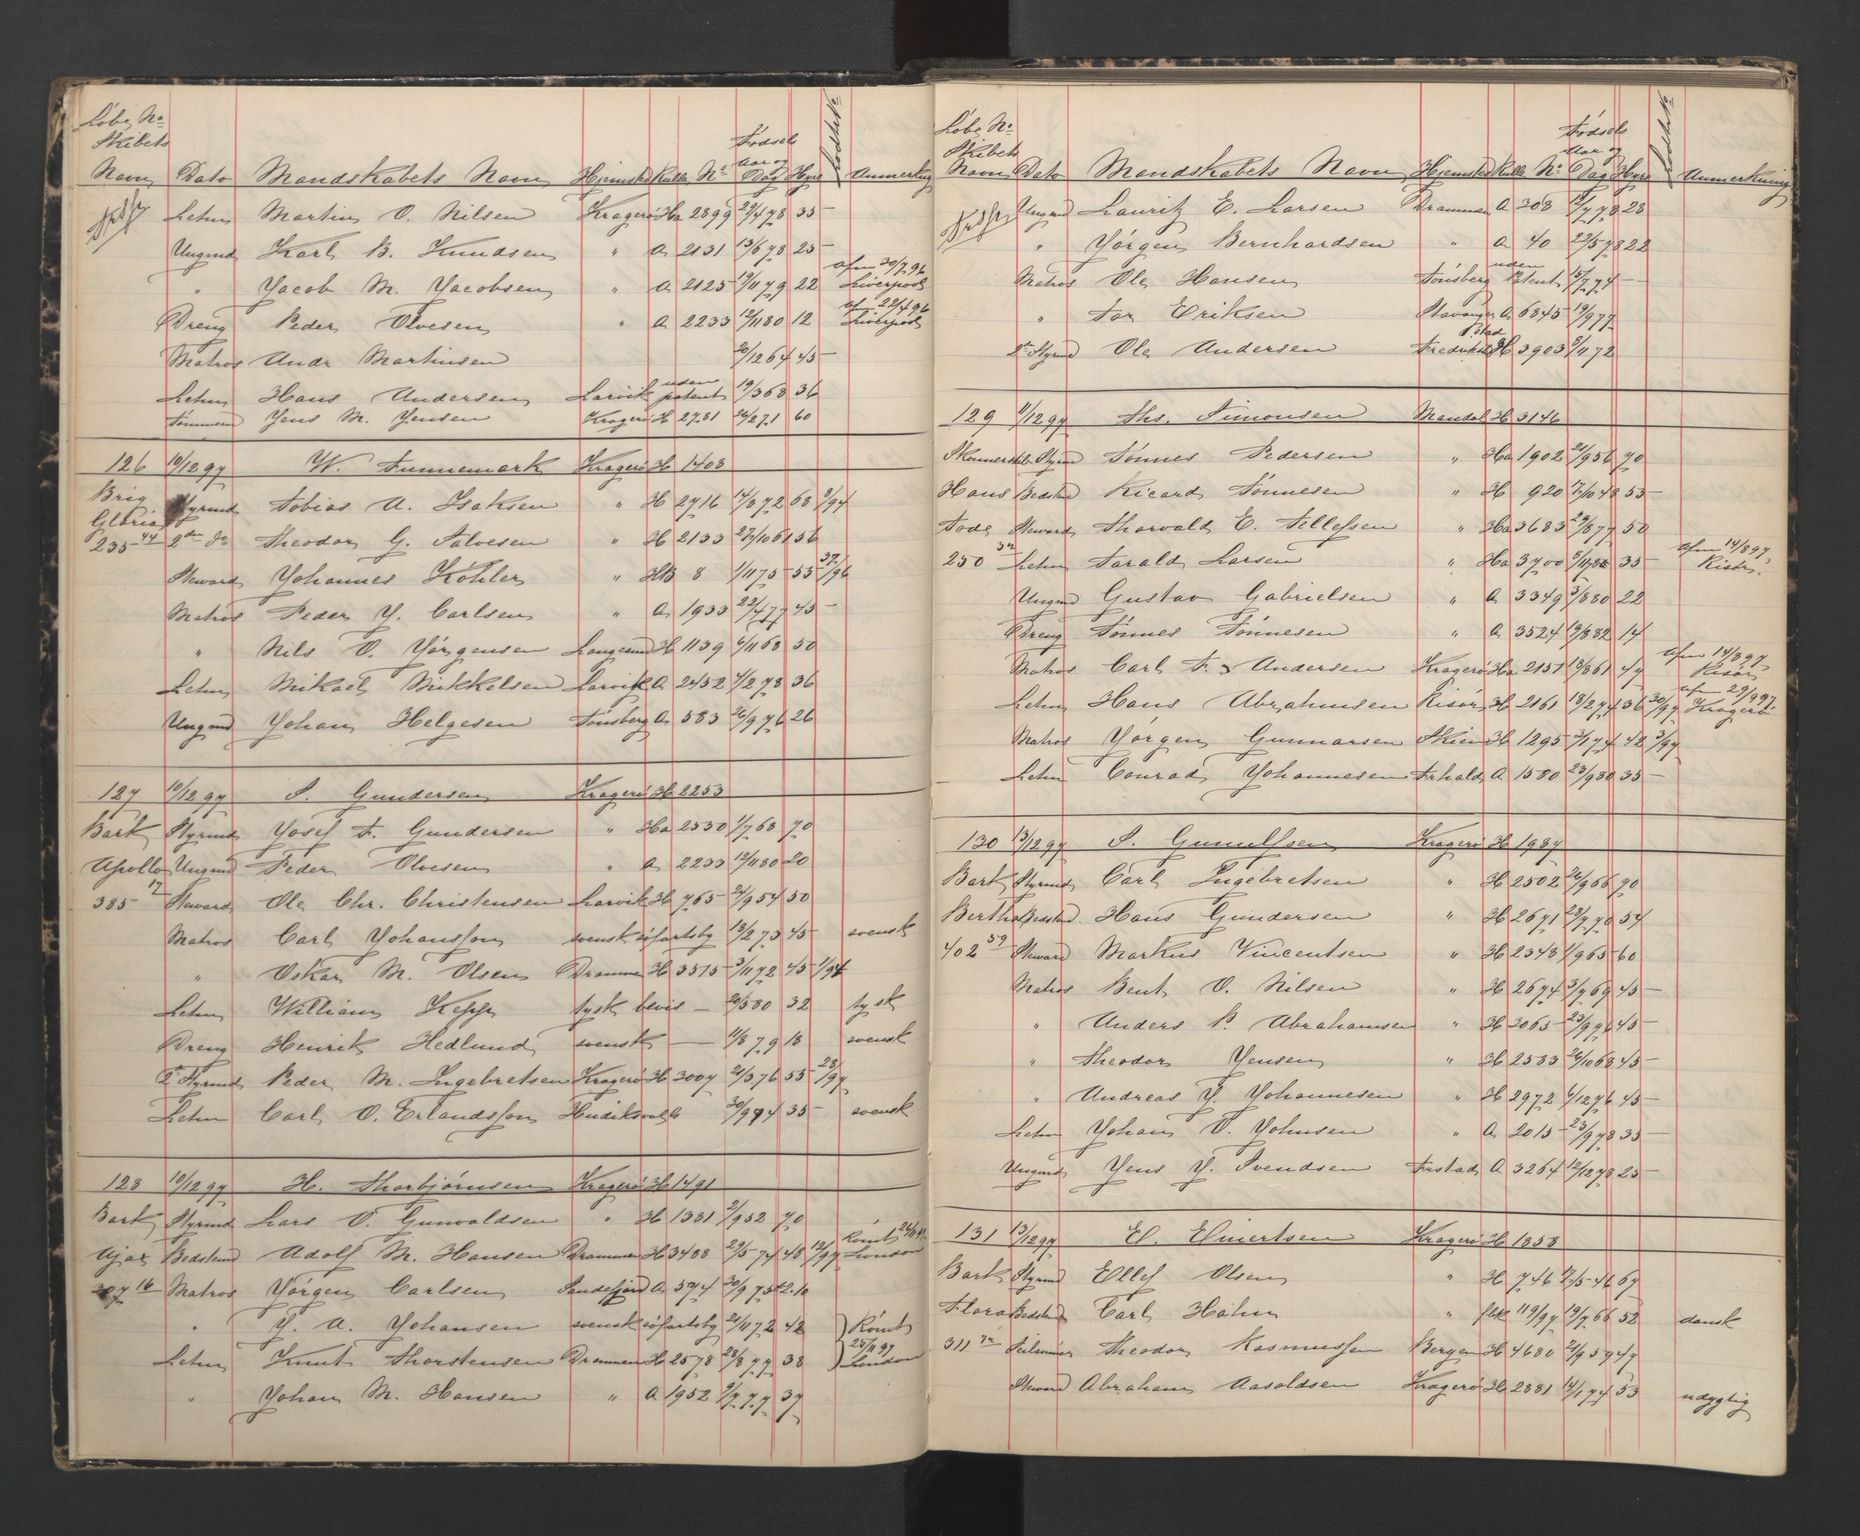 Løbe No
Skibets
Navn Dato Mandskabets Navn Hjemsted Rulle No Fødsels Aar og Dag Hyre Anmerkng
Letm Martin O. Nilsen Kragerø Ha 2899 29/4 78 35
Ungmd Karl B. Knudsen " A 2131 13/6 78 25
" Jacob M. Jacobsen " A 2125 19/11 79 22 afm 30/7 96 Liverpool
Dreng Peder Olvesen " A 2233 12/11 80 12 afm 22/4 96 Liverpool
Matros Andr Martinsen 20/12 64 45
Letm Hans Andersen Larvik uden patent 19/3 68 36
Tømmerm Jens M. Jensen Kragerø H 2781 26/2 71 60
126 10/12 97 W. Funnemark Kragerø H 1408
Brig Styrmd Tobias A. Isaksen " H 2716 14/8 72 68 9/94
Gloria
235 44 2den do Theodor G. Salvesen " H 2133 27/10 61 56
Steward Johannes Köhler " HB 8 1/11 75 55 37/96
Matros Peder J. Carlsen " A 1933 22/4 77 45
" Nils O. Jørgensen Langesund H 1139 6/11 68 50
Letm Mikael Mikkelsen Larvik A 2452 4/2 78 36
Ungmd Johan Helgesen Tønsberg A 583 26/9 76 26
127 10/12 97 S. Gundersen Kragerø H 2253
Bark Styrmd Josef F. Gundersen " Ha 2530 1/7 68 70
Apollo Ungmd Peder Olvesen " A 2233 12/11 80 20
385 17 Steward Ole Chr. Christensen Larvik H 765 24/9 54 50
Matros Carl Johansson svensk søfartsby 13/2 73 45 svensk
" Oskar M. Olsen Drammen H 3515 3/11 72 45 1/94
Letm William Kepp tysk bevis — 20/5 80 32 tysk
Dreng Henrik Hedlund svensk — 11/8 79 18 svensk
2n Styrmd Peder M. Ingebretsen Kragerø H 3007 21/3 76 55 28/97
Letm Carl O. Erlandsson Hudiksvall 30/9 74 35 svensk
128 10/12 97 H. Thorbjørnsen Kragerø H 1491
Bark Styrmd Lars O. Gunvaldsen " H 1381 2/9 52 70
Ajax Bedstmd Adolf M. Hansen Drammen H 3488 29/5 74 48 12/97 Rømt 24/11 97 London
307 16 Matros Jørgen Carlsen Sandefjord A 574 30/9 75 42.10
" J. A. Johansen svensk søfartsby 21/11 72 42 Rømt
Letm Knut Thorstensen Drammen H 2578 28/8 77 38 25/11 97 London
" Johan M. Hansen " A 1952 9/7 77 37
Løbe No
Skibets
Navn Dato Mandskabets Navn Hjemsted Rulle No Fødsels Aar og Dag Hyre Anmerkning
Ungmd Lauritz E. Larsen Drammen A 308 12/7 78 28
" Jørgen Bernhardsen " A 40 22/5 78 22
Matros Ole Hansen Tønsberg uden Patent 15/7 74 —
" Tor Eriksen Stavanger A 6845 19/9 77
2den Styrmd Ole Andersen Fredrikstad H 3903 8/11 72
129 11/12 97 Ths. Simonsen Mandal H 3146
Skonnertskib Styrmd Tønnes Pedersen " Ha 1902 21/9 56 70
Hans Bedstmd Ricard Tønnesen " H 920 17/10 48 55
Tode Steward Thorvald E. Tellefsen " Ha 3683 29/8 77 50
250 32 Letm Tarald Larsen " Ha 3700 5/11 78 35 afm 14/8 97 Risør.
Ungmd Gustav Gabrielsen " A 3349 3/8 80 22
Dreng Tønnes Tønnesen " A 3524 19/8 82 14
Matros Carl F. Andersen Kragerø Ha 2151 13/8 61 47 afm 14/8 97 Risør
Letm Hans Abrahamsen Risør H 2161 18/2 74 36 30/97 afm 29/9 97 Kragerø
Matros Jørgen Gunnarsen Skien H 1295 3/1 74 42 3/97
Letm Conrad Johannesen Frhald A 1580 23/9 80 35
130 13/12 97 S. Gunulfsen Kragerø H 1987
Bark Styrmd Carl Ingebretsen " H 2502 26/9 66 70
Bertha Bedstmd Hans Gundersen " H 2671 28/7 70 54
402 59 Steward Markus Vincentsen " H 2348 1/9 65 60
Matros Bent O. Nilsen " H 2674 3/7 69 45
" Anders P. Abrahamsen " H 3065 23/9 76 45
" Theodor Jensen " H 2583 26/10 68 45
" Andreas J. Johannesen " H 2972 6/12 76 45
Letm Johan O. Johnsen " A 2015 23/9 78 35
Ungmd Jens J. Svendsen Frstad A 3264 12/12 78 25
131 13/12 97 E. Einertsen Kragerø H 1858
Bark Styrmd Ellef Olsen " H 746 17/5 46 67
Flora Bedstmd Carl Hahn " 119/97 19/7 66 52 dansk
311 32 Seilmmer Theodor Rasmussen Bergen H 4680 21/9 59 47
Steward Abraham Aasoldsen Kragerø H 2881 14/1 74 53 udygtig